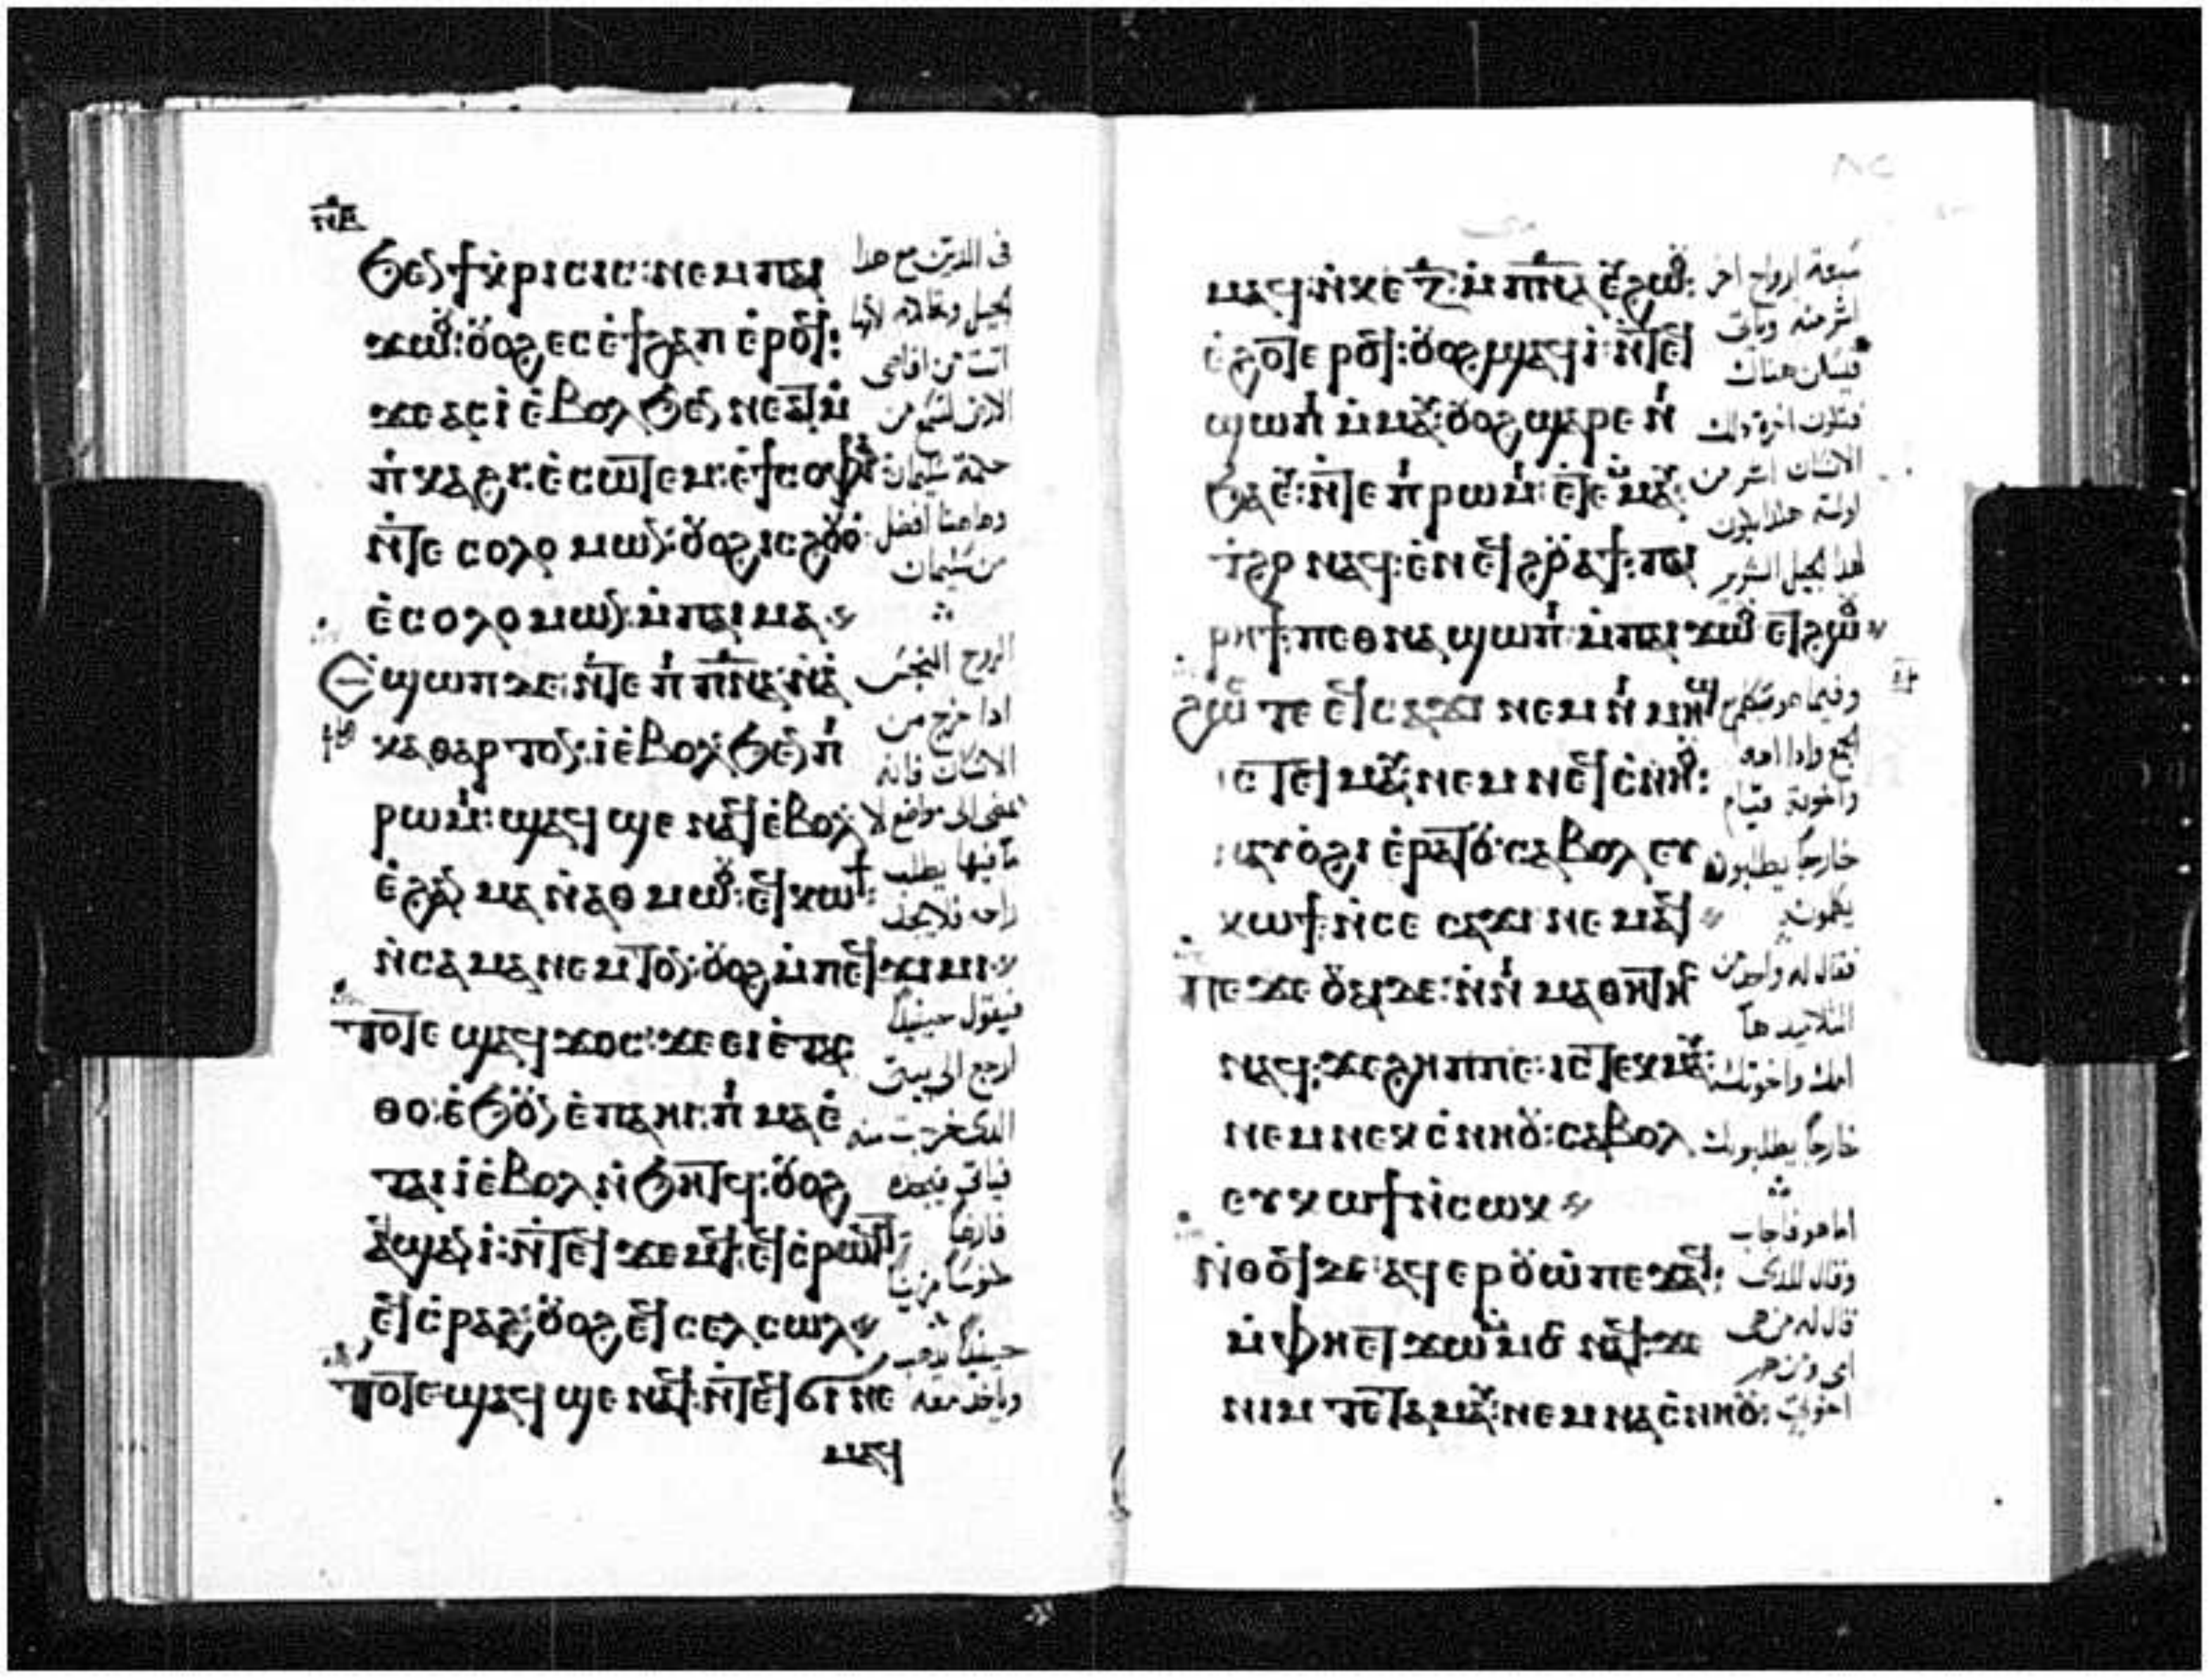 ⲛⲉ
ϧⲉⲛ ϯⲭⲣⲓⲥⲓⲥ: ⲛⲉⲙ ⲡⲁⲓ
ϫⲱⲟⲩ: ⲟⲩⲟϩ ⲉⲥⲉϯϩⲁⲡ ⲉⲣⲟϥ:
ϫⲉ ⲁⲥⲓ̀ ⲉ̀ⲃⲟⲗϧⲉⲛ ⲛⲉⲁⲩ ⲙ̀
ⲡ̀ⲕⲁϩⲓ: ⲉ̀ⲥⲱⲧⲉⲙ: ⲉ̀ϯⲥⲟⲫⲓⲁ
ⲛ̀ⲧⲉ ⲥⲟⲗⲟⲙⲱⲛ: ⲟⲩⲟϩ ⲓⲥ ϩⲟⲩⲟ̀
ⲉ̀ⲥⲟⲗⲟⲙⲱⲛ: ⲙ̀ⲡⲁⲓⲙⲁ
Ⲉϣⲱⲡ ⲇⲉ: ⲛ̀ⲧⲉ ⲡⲓⲡⲛⲁ: ⲛⲁ̀
ⲕⲁⲑⲁⲣⲧⲟⲛ: ⲓ̀ ⲉ̀ⲃⲟⲗϧⲉⲛ ⲡⲓ
ⲣⲱⲙⲓ: ϣⲁϥϣⲉ ⲛⲁϥ ⲉ̀ⲃⲟⲗ:
ⲉ̀ϩⲁⲛ ⲙⲁ ⲛ̀ⲁⲑⲙⲱⲟⲩ: ⲉϥⲕⲱϯ:
ⲛ̀ⲥⲁ ⲙⲁⲛⲉⲙⲧⲟⲛ: ⲟⲩⲟϩ ⲙ̀ⲡⲉϥϫⲓⲙⲓ
ⲧⲟⲧⲉ ϣⲁϥϫⲟⲥ: ϫⲉ ⲉⲓⲉ̀ⲧⲁⲥ
ⲑⲟ: ⲉ̀ϧⲟⲩⲛ ⲉ̀ⲡⲁⲏⲓ: ⲡⲓⲙⲁ ⲉ̀
ⲧⲁⲓⲓ̀ ⲉ̀ⲃⲟⲗ ⲛ̀ϧⲏⲧϥ: ⲟⲩⲟϩ
ⲁϥϣⲁⲛⲓ̀: ⲛ̀ⲧⲉϥϫⲉⲙϥ: ⲉϥⲥ̀ⲣⲱϥⲧ
ⲉϥⲥ̀ⲣⲁϩ: ⲟⲩⲟϩ ⲉϥⲥⲉⲗⲥⲱⲗ
ⲧⲟⲧⲉ ϣⲁϥϣⲉ ⲛⲁϥ: ⲛ̀ⲧⲉϥϭⲓ ⲛⲉ
ⲙⲁϥ
فى الدين مع هدا
الجيل وتقاتله لانها
اتت من اقاصى
الارض لتسمع من
حكمة سليمان
وهاهنا افضل
من سليمان
الروح النجس
ادا خرج من
الانسان فانه
يمضى الى مواضع لا
ما فيها يطلب
راحه فلا يجد
فيقول حينيدا
ارجع الى بيتى
الدى خرجت منه
فياتى فيجده
فارغا
مكنوسا مزينا
حينيدا يدهب
وياخد معه
ⲙⲁϥ: ⲛ̀ⲕⲉ ⲍ̅ ⲙ̀ⲡⲛⲁ ⲉⲩϩⲱⲟⲩ:
ⲉ̀ϩⲟⲧⲉⲣⲟϥ: ⲟⲩⲟϩ ϣⲁϥⲓ̀: ⲛ̀ⲧⲉϥ
ϣⲱⲡⲓ ⲙ̀ⲙⲁⲩ: ⲟⲩⲟϩ ϣⲁⲣⲉ ⲛⲓ
ϧⲁⲉⲩ: ⲛ̀ⲧⲉ ⲡⲓⲣⲱⲙⲓ: ⲉ̀ⲧⲉⲙⲙⲁⲩ:
ⲧ̀ϩⲟ ⲛⲁϥ: ⲉ̀ⲛⲉϥϩⲟⲩⲁϯ: ⲡⲁⲓ
ⲣⲏϯ: ⲡⲉⲑⲛⲁϣⲱⲡⲓ: ⲙ̀ⲡⲁⲓϫⲱⲟⲩ ⲉⲧϩⲱⲟⲩ
ϩⲱⲥ ⲧⲉ ⲉϥⲥⲁϫⲓ ⲛⲉⲙ ⲛⲓⲙⲏϣ
ⲓⲥ ⲧⲉϥⲙⲁⲩ: ⲛⲉⲙ ⲛⲉϥⲥ̀ⲛⲏⲟⲩ:
ⲛⲁⲩⲟ̀ϩⲓ ⲉ̀ⲣⲁⲧⲟⲩ: ⲥⲁⲃⲟⲗ ⲉⲩ
ⲕⲱϯ: ⲛ̀ⲥⲉ ⲥⲁϫⲓ ⲛⲉⲙⲁϥ
ⲡⲉϫⲉ ⲟⲩⲁⲓ ⲇⲉ: ⲛ̀ⲛⲓⲙⲁⲑⲏⲧⲏⲥ
ⲛⲁϥ: ϫⲉ ϩⲏⲡⲡⲉ: ⲓⲥ ⲧⲉⲕⲙⲁⲩ:
ⲛⲉⲙ ⲛⲉⲕⲥ̀ⲛⲏⲟⲩ: ⲥⲁⲃⲟⲗ
ⲉⲩⲕⲱϯ ⲛ̀ⲥⲱⲕ
ⲛ̀ⲑⲟϥ ⲇⲉ: ⲁϥⲉⲣⲟⲩⲱ̀ ⲡⲉϫⲁϥ:
ⲙ̀ⲫⲏⲉⲧϫⲱ ⲙ̀ⲙⲟⲥ ⲛⲁϥ: ϫⲉ
ⲛⲓⲙ ⲧⲉ ⲧⲁⲙⲁⲩ: ⲛⲉⲙ ⲛⲁⲥ̀ⲛⲏⲟⲩ:
سبعة ارواح اخر
اشر منه وياتى
فيسكن هناك
فتكون اخرة دلك
الانسان اشر من
اوليته هكدا يكون
لهدا الجيل الشرير
وفيما هو يتكلم مع
الجمع وادا امه
واخوته قيام
خارجا يطلبون
يكلمونه
فقال له واحد من
التلاميد ها
امك واخوتك
خارجا يطلبونك
اما هو فاجاب
وقال للدى
قال له من هى
امى ومن هم
اخوتى